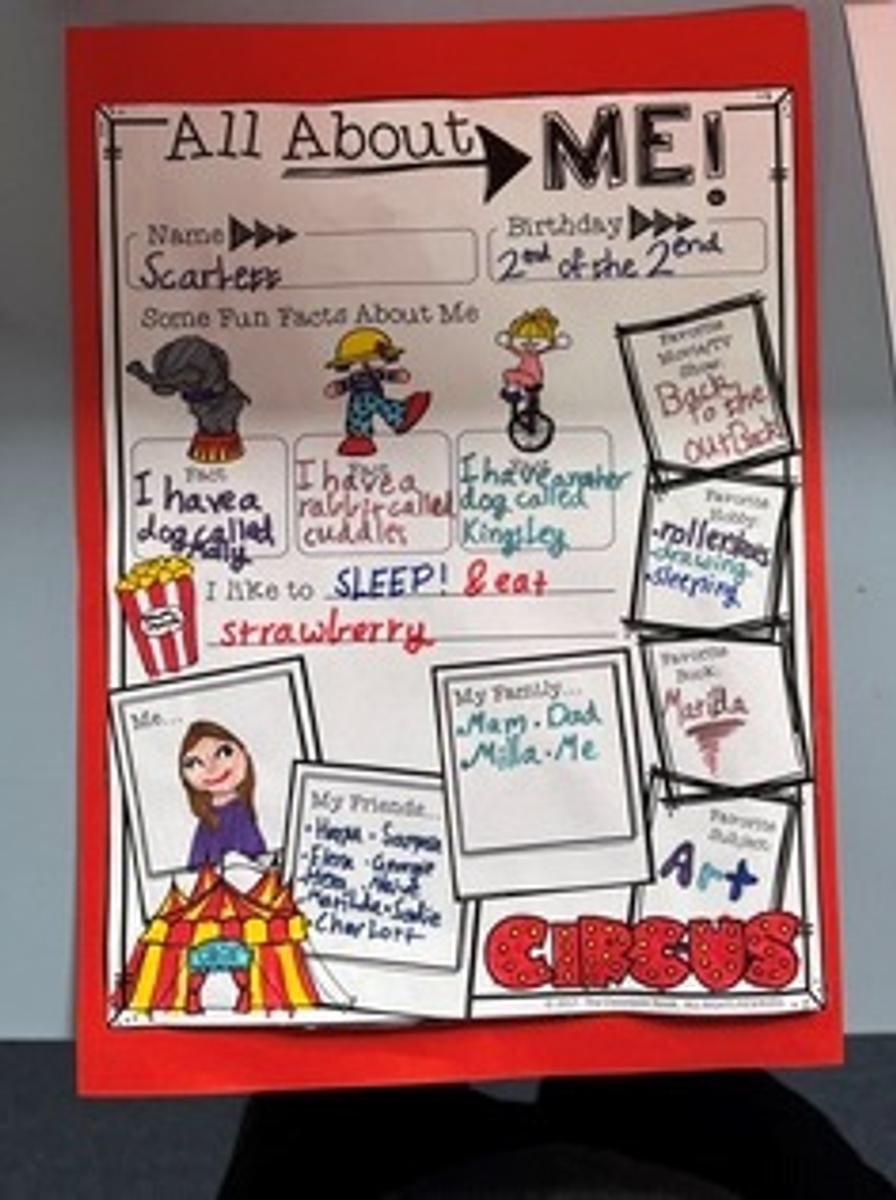 All About ME!
Name
Scarlett
Birthday
2nd of the 2end
Some Fun Facts About Me
Fact
I have a
dog called
Molly
I have a
rabbit called
cuddles
I have another
dog called
Kingsley
I like to SLEEP! & eat
strawberry
Favorite
Movie/TV
Show:
Back
to the
outBack
Favorite
Hobby:
drawing
•sleeping
Favorite
Book:
Favorite
Subject:
Art
Me...
My Friends...
•Elena •Georgie
•Matilda •Sadie
My Family...
•Mam •Dad
•Milla •Me
CIRCUS